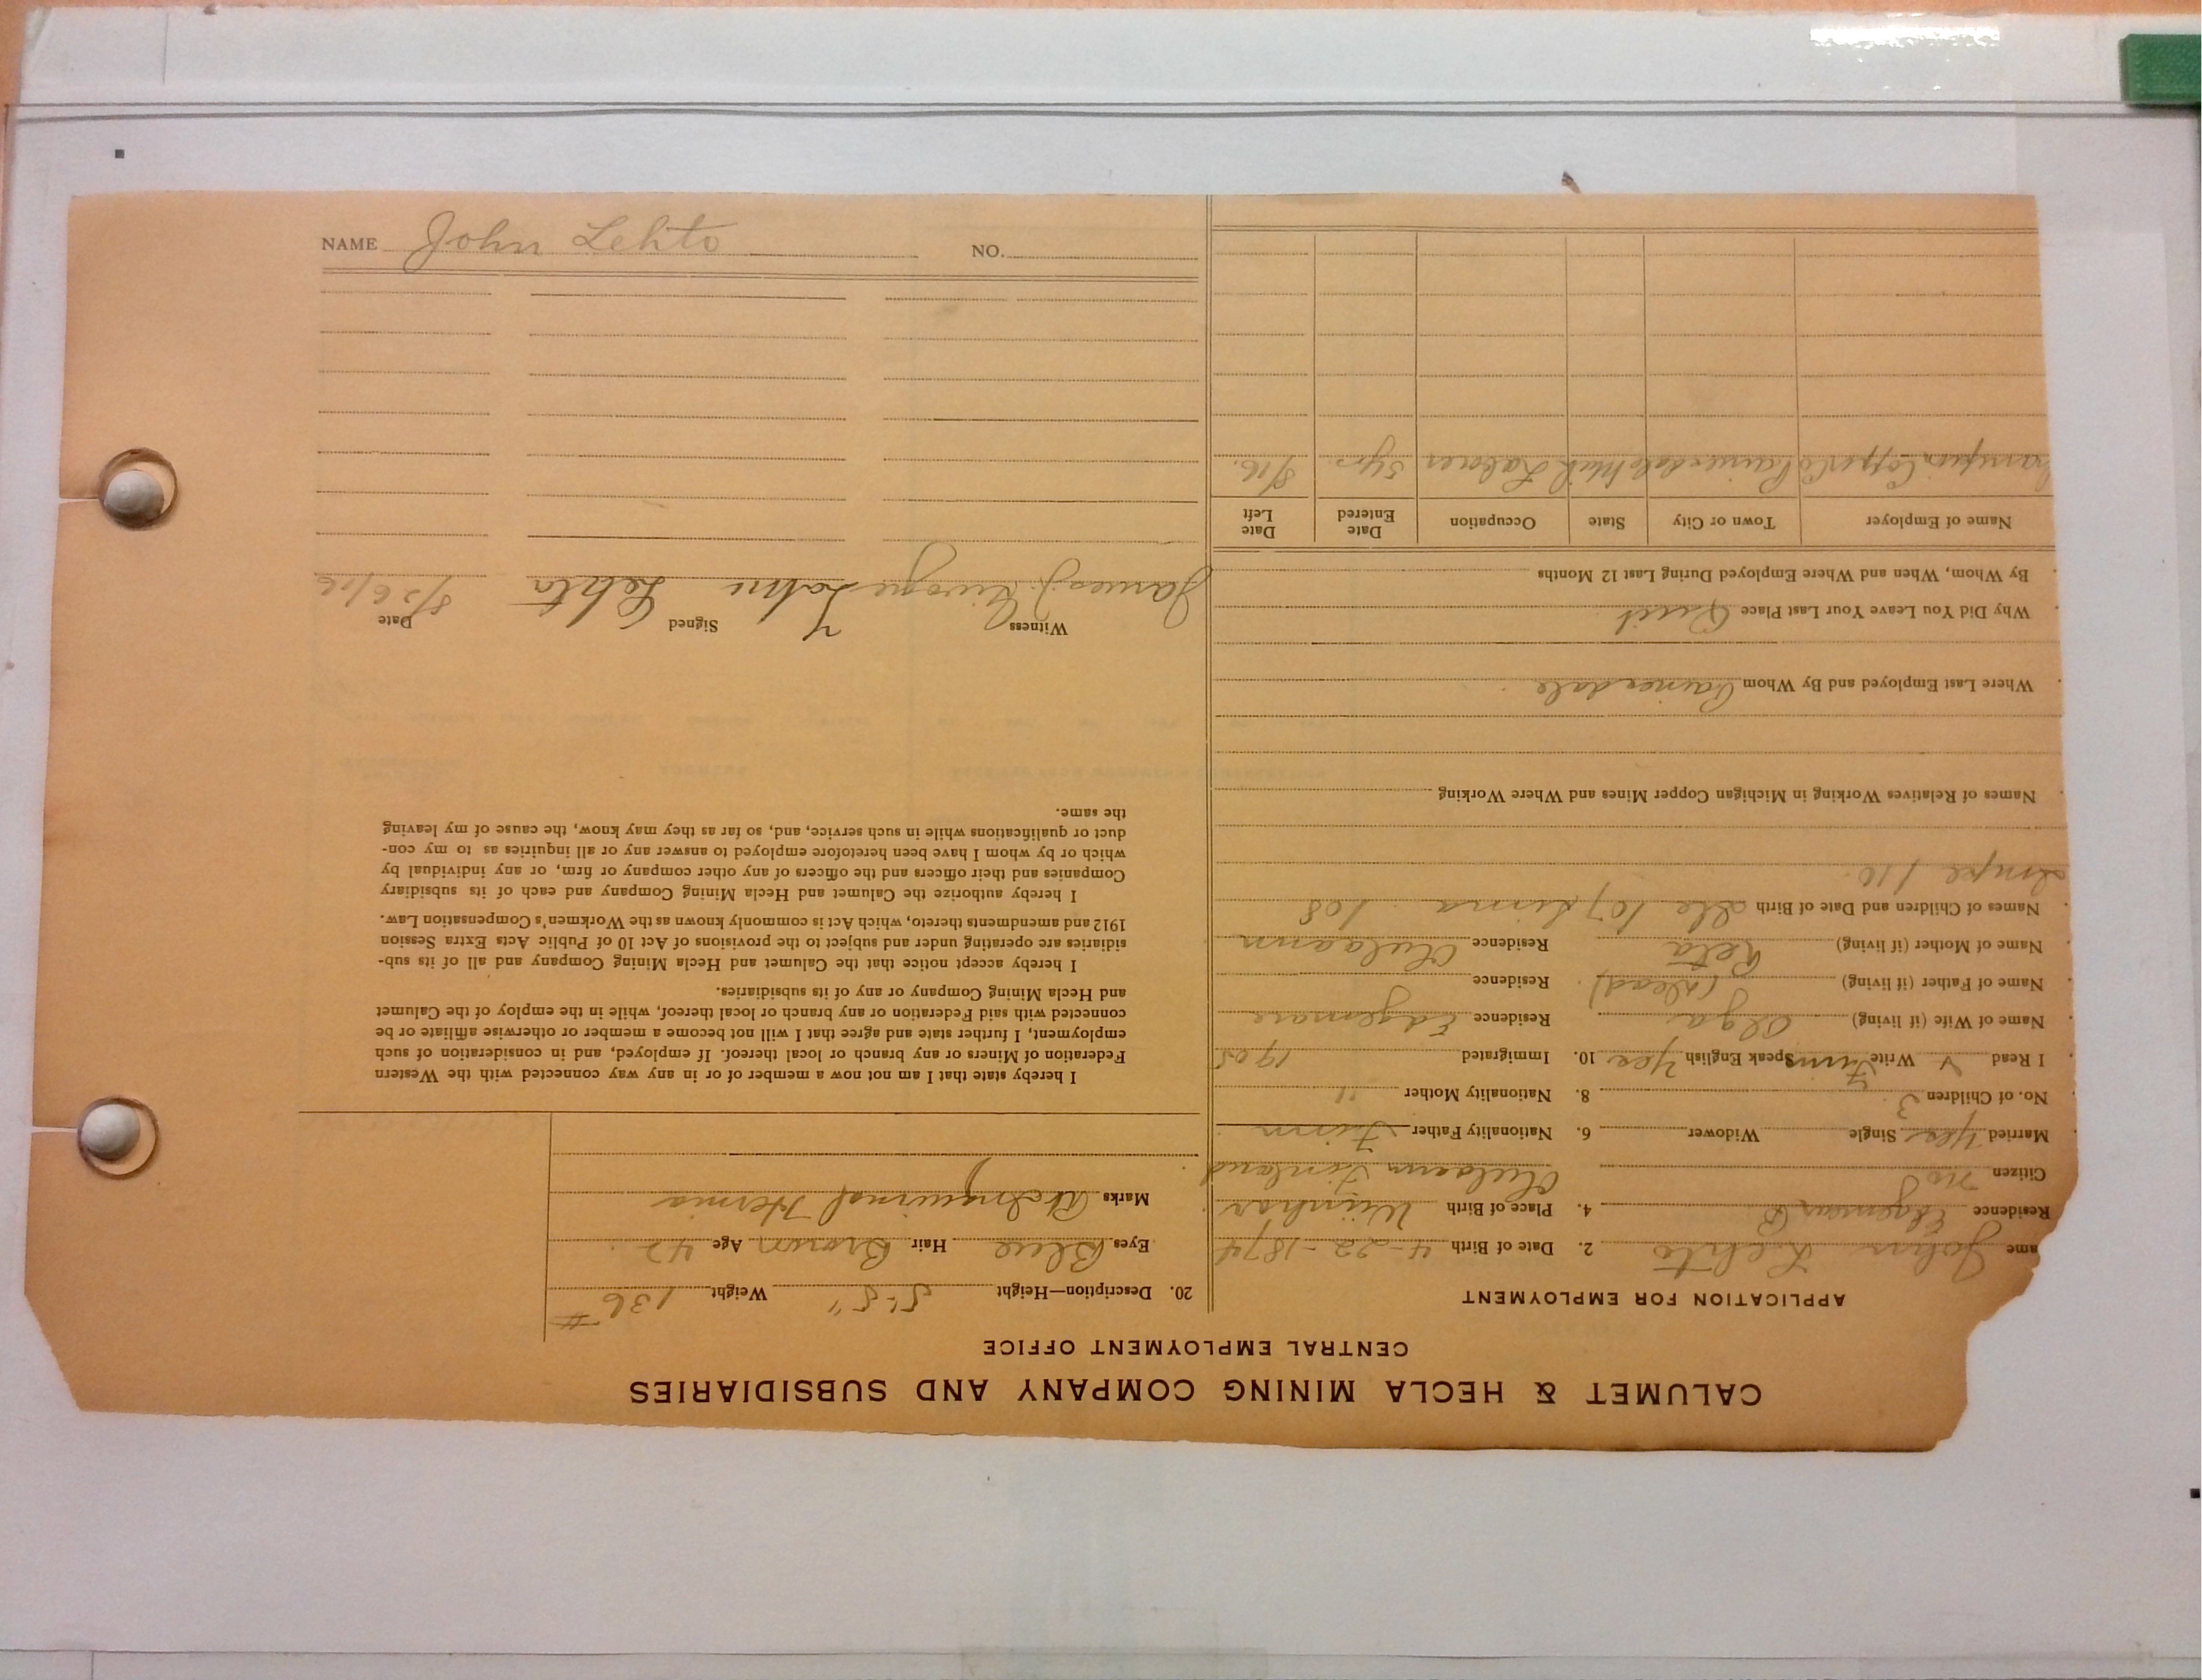 CALUMET & HECLA MINING COMPANY AND SUBSIDIARIES
CENTRAL EMPLOYMENT OFFICE
APPLICATION FOR EMPLOYMENT
ame John Lehto 2. Date of Birth 4-22-1874
Residence 4. Place of Birth
Citizen no Finland
Married Yes Single Widower 6. Nationality Father Finn
No. of Children 3 8. Nationality Mother "
I Read Write Finn Speak English Yes 10. Immigrated
Name of Wife (if living) Olga Residence
Name of Father (if living) (dead) Residence
Name of Mother (if living) Residence
Names of Children and Date of Birth
Names of Relatives of Working in Michigan Copper Mines and Where Working
Where Last Employed and By Whom Painesdale
Why Did You Leave Your Last Place Quit
By Whom, When and Where Employed During Last 12 Months
Name of Employer Town or City State Occupation Date Entered Date Left
Copper Co Painesdale Mich Laborer 5 yrs. 8/16.
20. Description—Height 5'-5" Weight 136 #
Eyes Blue Hair Brown Age 42
Marks Hernia
I hereby state that I am not now a member of or in any way connected with the Western
Federation of Miners or any branch or local thereof. If employed, and in consideration of such
employment, I further state and agree that I will not become a member or otherwise affiliate or be
connected with said Federation or any branch or local thereof, while in the employ of the Calumet
and Hecla Mining Company or any of its subsidiaries.
I hereby accept notice that the Calumet and Hecla Mining Company and all of its sub-
sidiaries are operating under and subject to the provisions of Act 10 of Public Acts Extra Session
1912 and amendments thereto, which Act is commonly known as the Workmen's Compensation Law.
I hereby authorize the Calumet and Hecla Mining Company and each of its subsidiary
Companies and their officers and the officers of any other company or firm, or any individual by
which or by whom I have been heretofore employed to answer any or all inquiries as to my con-
duct or qualifications while in such service, and, so far as they may know, the cause of my leaving
the same.
Witness Signed Date
James J. John Lehto 8/26/16
NAME John Lehto NO.